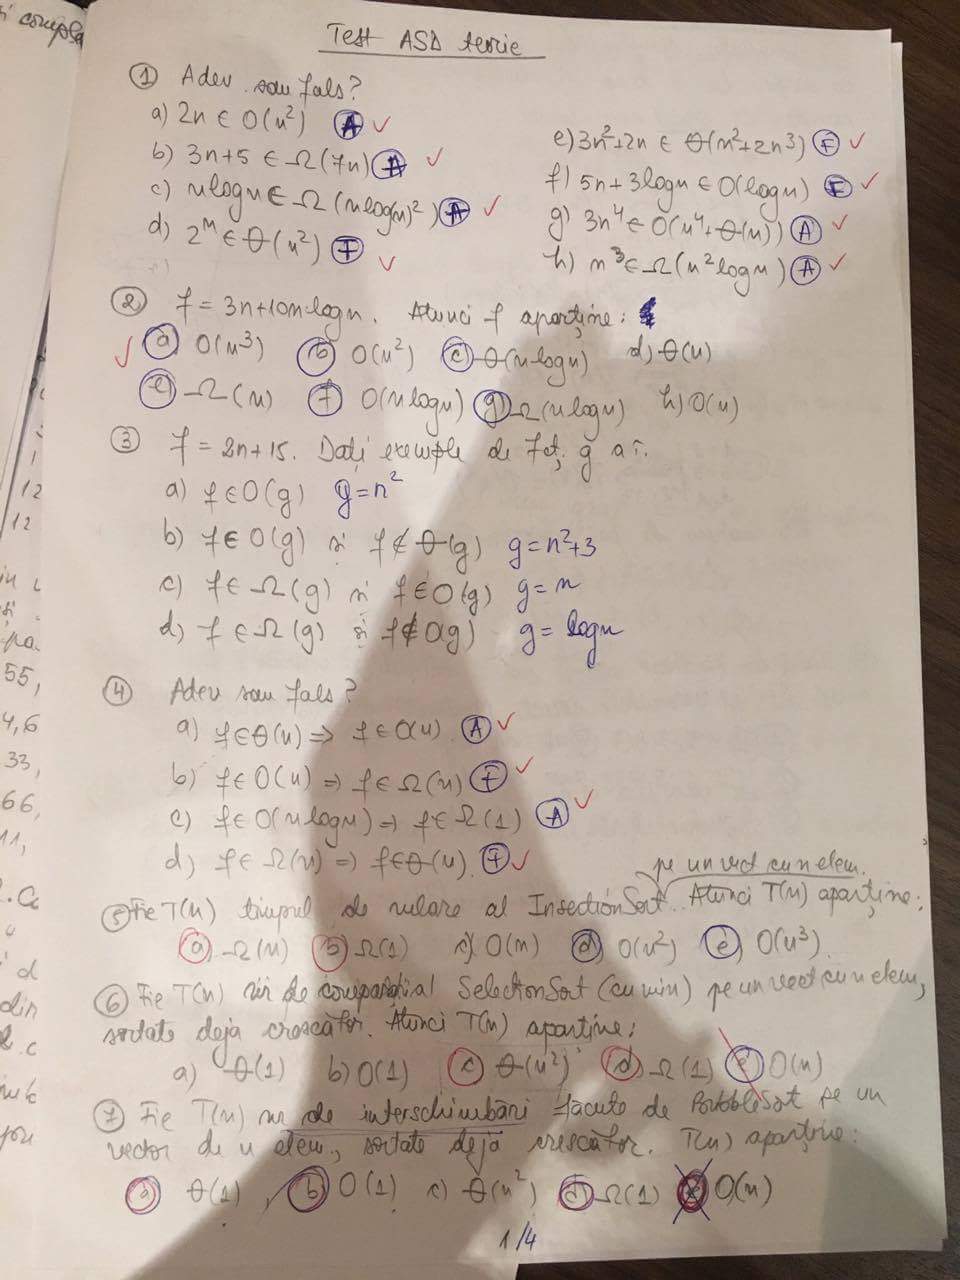 Test ASD teorie
① Adev sau fals?
a) 2n ∈ O(n²) A ✓
b) 3n+5 ∈ Ω(7n) A ✓
c) nlogn ∈ Ω(nlog(n)²) A ✓
d) 2ⁿ ∈ Θ(n²) F ✓
e) 3n²+2n ∈ Θ(n²+2n³) F ✓
f) 5n+3logn ∈ O(logn) F ✓
g) 3n⁴ ∈ O(n⁴+Θ(n)) A ✓
h) n³ ∈ Ω(n²logn) A ✓
② f = 3n+10n·logn. Atunci f aparține:
✓ a) O(n³) b) O(n²) c) Θ(nlogn) d) Θ(n)
e) Ω(n) f) O(nlogn) g) Ω(nlogn) h) O(n)
③ f = 2n+15. Dați exemple de fct. g a î.
a) f ∈ O(g) g=n²
b) f ∈ O(g) și f ∉ Θ(g) g=n²+3
c) f ∈ Ω(g) și f ∈ O(g) g=n
d) f ∈ Ω(g) și f ∉ O(g) g= logn
④ Adev sau fals?
a) f ∈ Θ(n) ⇒ f ∈ O(n) A ✓
b) f ∈ O(n) ⇒ f ∈ Ω(n) F ✓
c) f ∈ O(nlogn) ⇒ f ∈ Ω(1) A ✓
d) f ∈ Ω(n) ⇒ f ∈ Θ(n) F ✓
pe un vect cu n elem.
⑤ Fie T(n) timpul de rulare al InsectionSort. Atunci T(n) aparține:
a) Ω(n) b) Ω(1) c) O(n) d) O(n²) e) O(n³)
⑥ Fie T(n) de comparații al SelectionSort (cu min) pe un vect cu n elem,
sortate deja crescător. Atunci T(n) aparține:
a) Θ(1) b) O(1) c) Θ(n²) d) Ω(1) e) O(n)
⑦ Fie T(n) nr de interschimbări făcute de BubbleSot pe un
vector de n elem, sortate deja crescător. T(n) aparține:
a) Θ(1) b) O(1) c) Θ(n²) d) Ω(1) e) O(n)
1/4
și
12
12
55,
4,6
33,
66,
11,
din